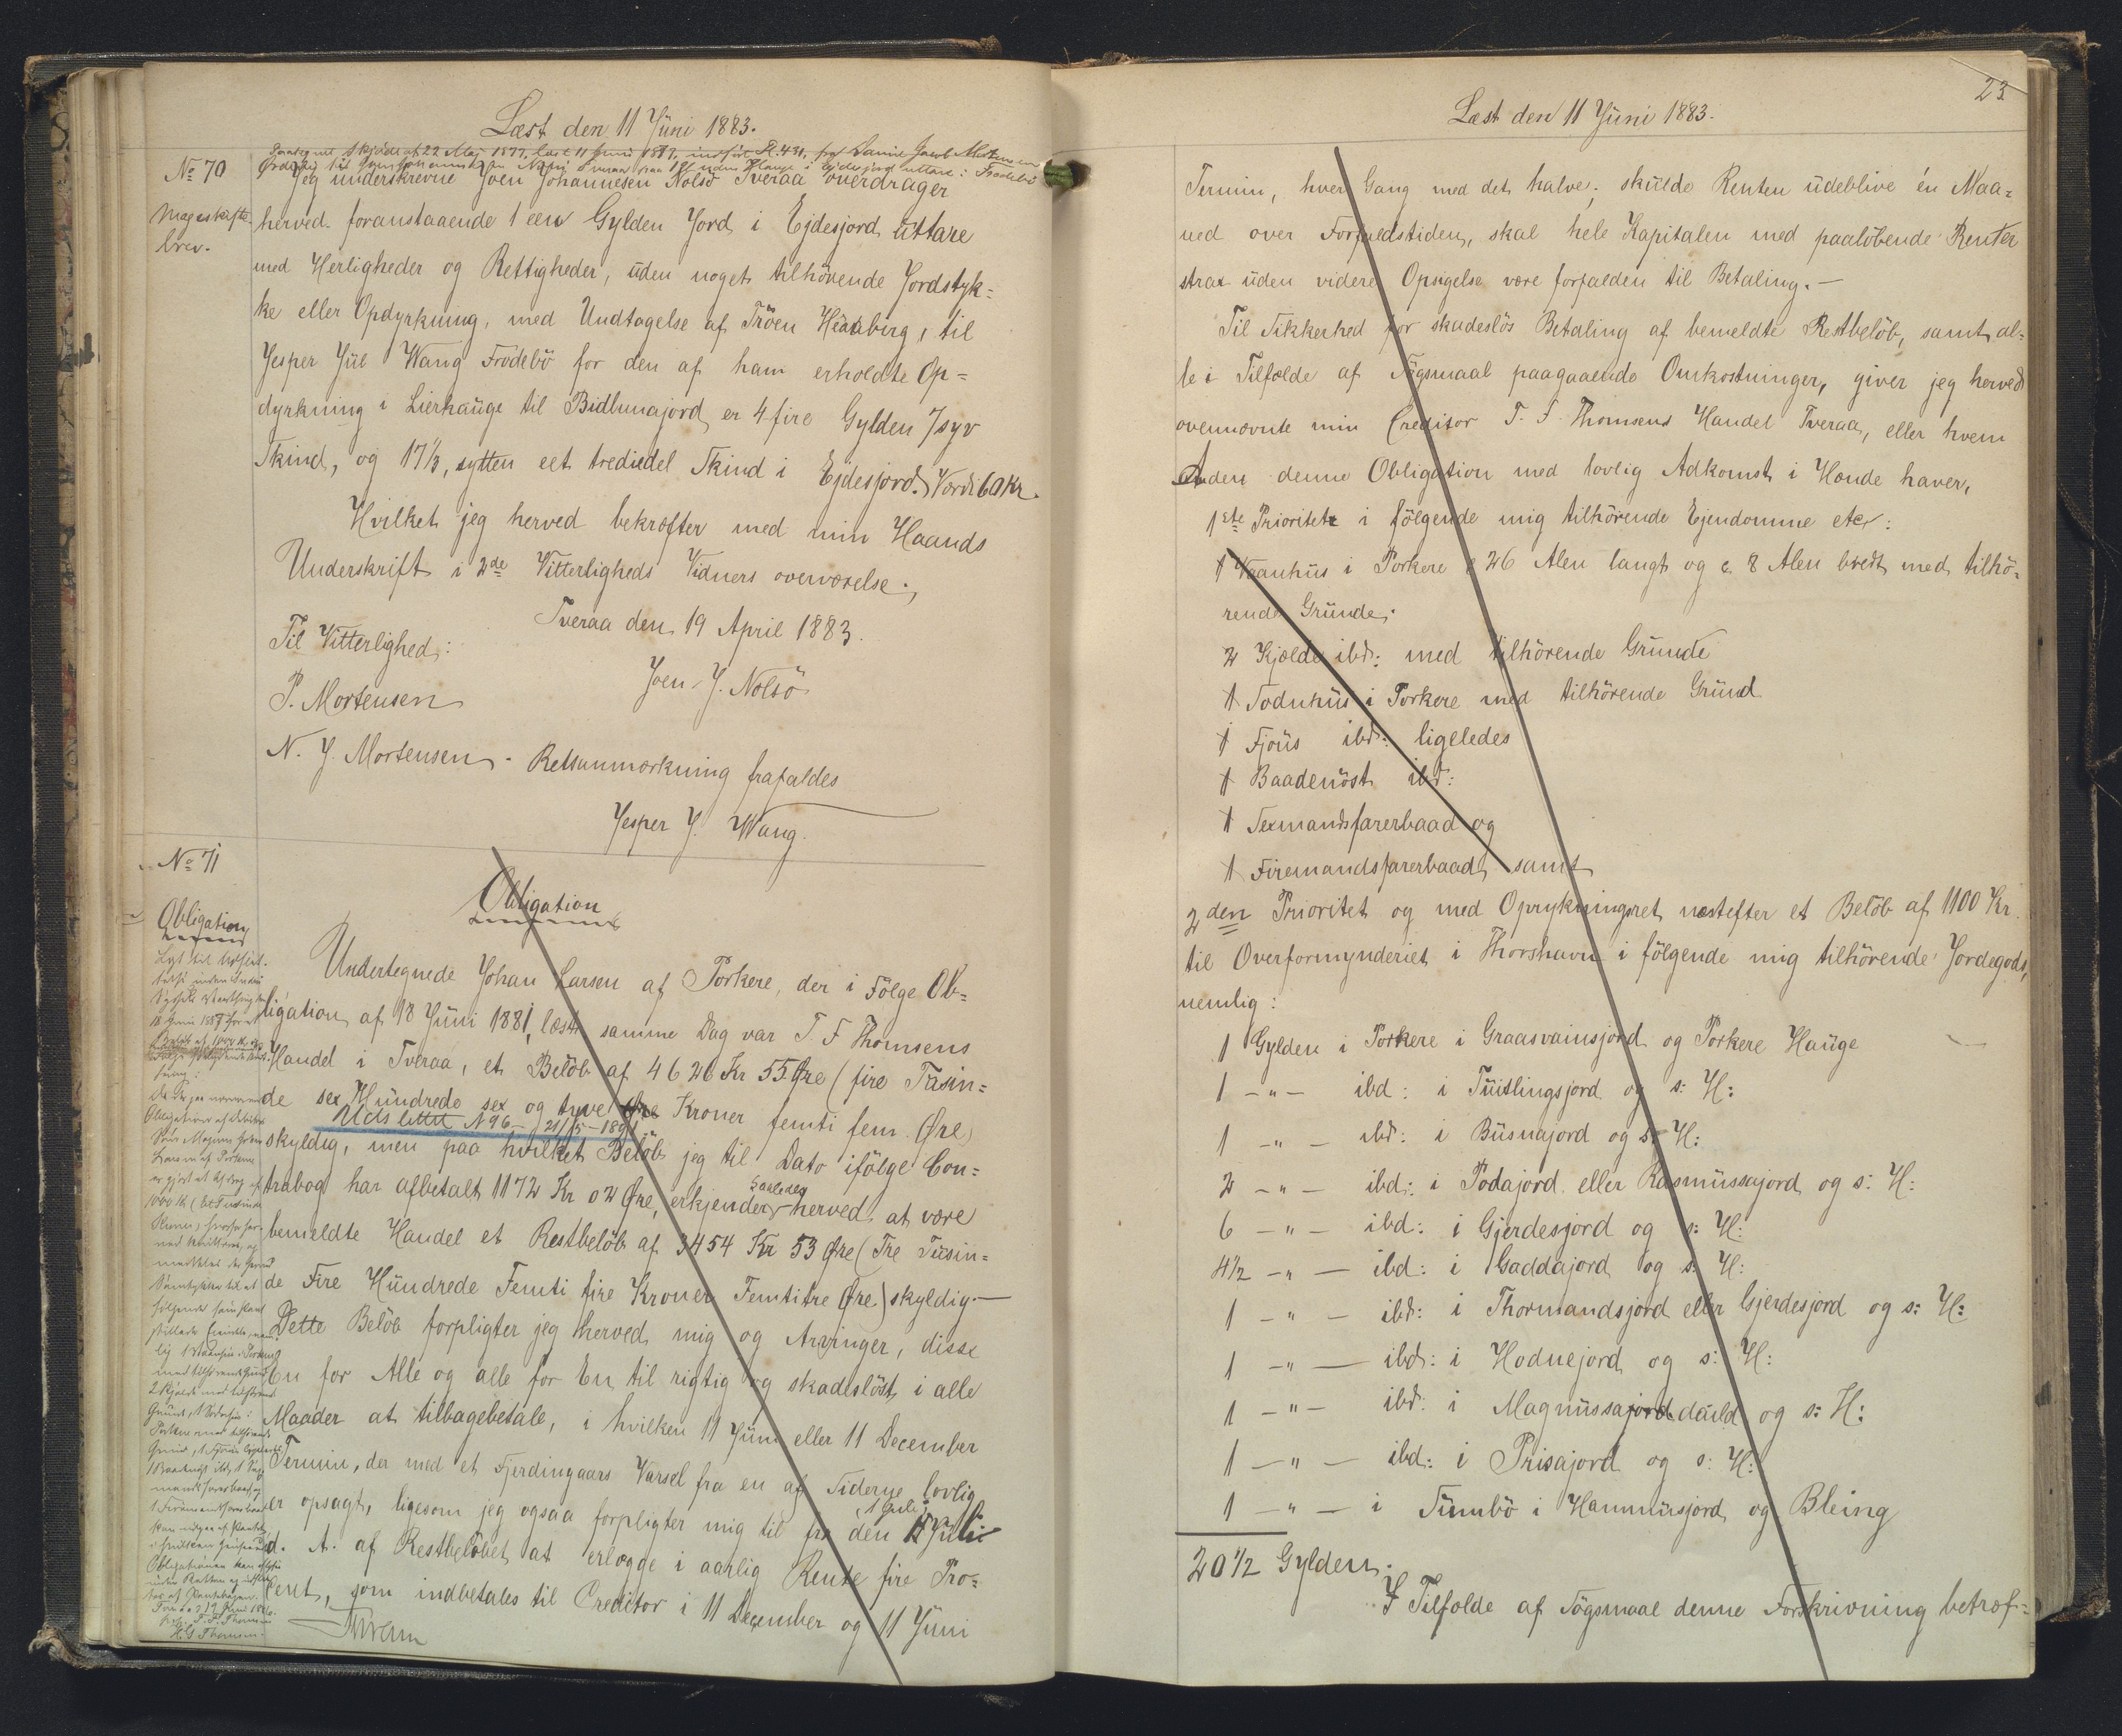 Læst den 11 Juni 1883.
Paategnet Skjøde af 22 Maj 1877, læst 11 Juni 1877, indført R. 431, fra Daniel Jacob Mortensen
No 70
Jeg underskrevne Joen Johannesen Nolsö Tveraa overdrager
Mageskifte-
brev.
herved foranstaaende 1 een Gylden Jord i Ejdesjord uttare
med Herligheder og Rettigheder, uden noget tilhörende Jordstyk=
ke eller Opdyrkning, med Undtagelse af Tröen Heaaberg, til
Jesper Jul Wang Frodebö for den af ham erholdte Op=
dyrkning i Lierhauge til Bidlunajord er 4 fire Gylden 7 syv
Skind, og 17 1/3, sytten eet trediedel Skind i Ejdesjord. Værdi 60 Kr.
Hvilket jeg herved bekræfter med min Haands
Underskrift i 2de Vitterligheds Vidners overværelse.
Tveraa den 19 April 1883.
Til Vitterlighed:
Joen J. Nolsö
P. Mortensen
N. J. Mortensen
Retsanmærkning frafaldes
Jesper J. Wang.
No 71
Obligation
Obligation
Undertegnede Johan Larsen af Porkere, der i Fölge Ob=
ligation af 18 Juni 1881, læst samme Dag var T. F. Thomsens
Handel i Tveraa, et Belöb af 4626 Kr 55 Øre (fire Tusin=
de sex Hundrede sex og tyve Øre Kroner femti fem Øre)
Udslettet N 96 - 21/5 - 1891.
skyldig, men paa hvilket Belöb jeg til Dato ifölge Con=
trabog har afbetalt 1172 Kr 02 Øre, erkjender saaledes herved at være
bemeldte Handel et Restbelöb af 3454 Kr 53 Øre (Tre Tusin=
de Fire Hundrede Femti fire Kroner Femtitre Øre) skyldig.—
Dette Belöb forpligter jeg herved mig og Arvinger, disse
En for Alle og alle for En, til rigtig og skadeslöst i alle
Maader at tilbagebetale, i hvilken 11 Juni eller 11 December
Termin, der med et Fjerdingaars Varsel fra en af Siderne lovlig
er opsagt, ligesom jeg ogsaa forpligter mig til fra den 1 Juli
d. A. af Restbelöbet at erlægge i aarlig Rente fire Pro=
cent, som indbetales til Creditor i 11 December og 11 Juni
23
Læst den 11 Juni 1883.
Termin, hver Gang med det halve; skulde Renten udeblive én Maa=
ned over Forfaldstiden, skal hele Kapitalen med paalöbende Renter
strax uden videre Opsigelse være forfalden til Betaling.—
Til Sikkerhed for skadeslös Betaling af bemeldte Restbelöb, samt al=
le i Tilfælde af Sögsmaal paagaaende Omkostninger, giver jeg herved
ovennævnte min Creditor T. F. Thomsens Handel Tveraa, eller hvem
anden denne Obligation med lovlig Adkomst i Hænde haver,
1ste Prioritet i fölgende mig tilhörende Ejendomme etc:
1 Vaanhus i Porkere c 26 Alen langt og c. 8 Alen bredt med tilhö=
rende Grunde.
2 Kjælde ibd: med tilhörende Grunde
1 Sodnhus i Porkere med tilhörende Grund
1 Fjöus ibd: ligeledes
1 Baadenöst ibd:
1 Sexmandsfarerbaad og
1 Firemandsfarerbaad, samt
2den Prioritet og med Oprykningsret næstefter et Belöb af 1100 Kr.
til Overformynderiet i Thorshavn i fölgende mig tilhörende Jordegods,
nemlig:
1 Gylden i Porkere i Graasvainsjord og Porkere Hauge
1 — " — ibd: i Tuitlingsjord og s: H:
1 — " — ibd: i Busnajord og s: H:
2 — " — ibd: i Podajord eller Rasmussajord og s: H:
6 — " — ibd: i Gjerdesjord og s: H:
4 1/2 — " — ibd: i Gaddajord og s: H:
1 — " — ibd: i Thormandsjord eller Gjerdesjord og s: H:
1 — " — ibd: i Hodnejord og s: H:
1 — " — ibd: i Magnussajorddaild og s: H:
1 — " — ibd: i Prisajord og s: H:
1 — " — i Sumbö i Hammusjord og Bleing
20 1/2 Gylden.
I Tilfælde af Sögsmaal denne Forskrivning betræf=